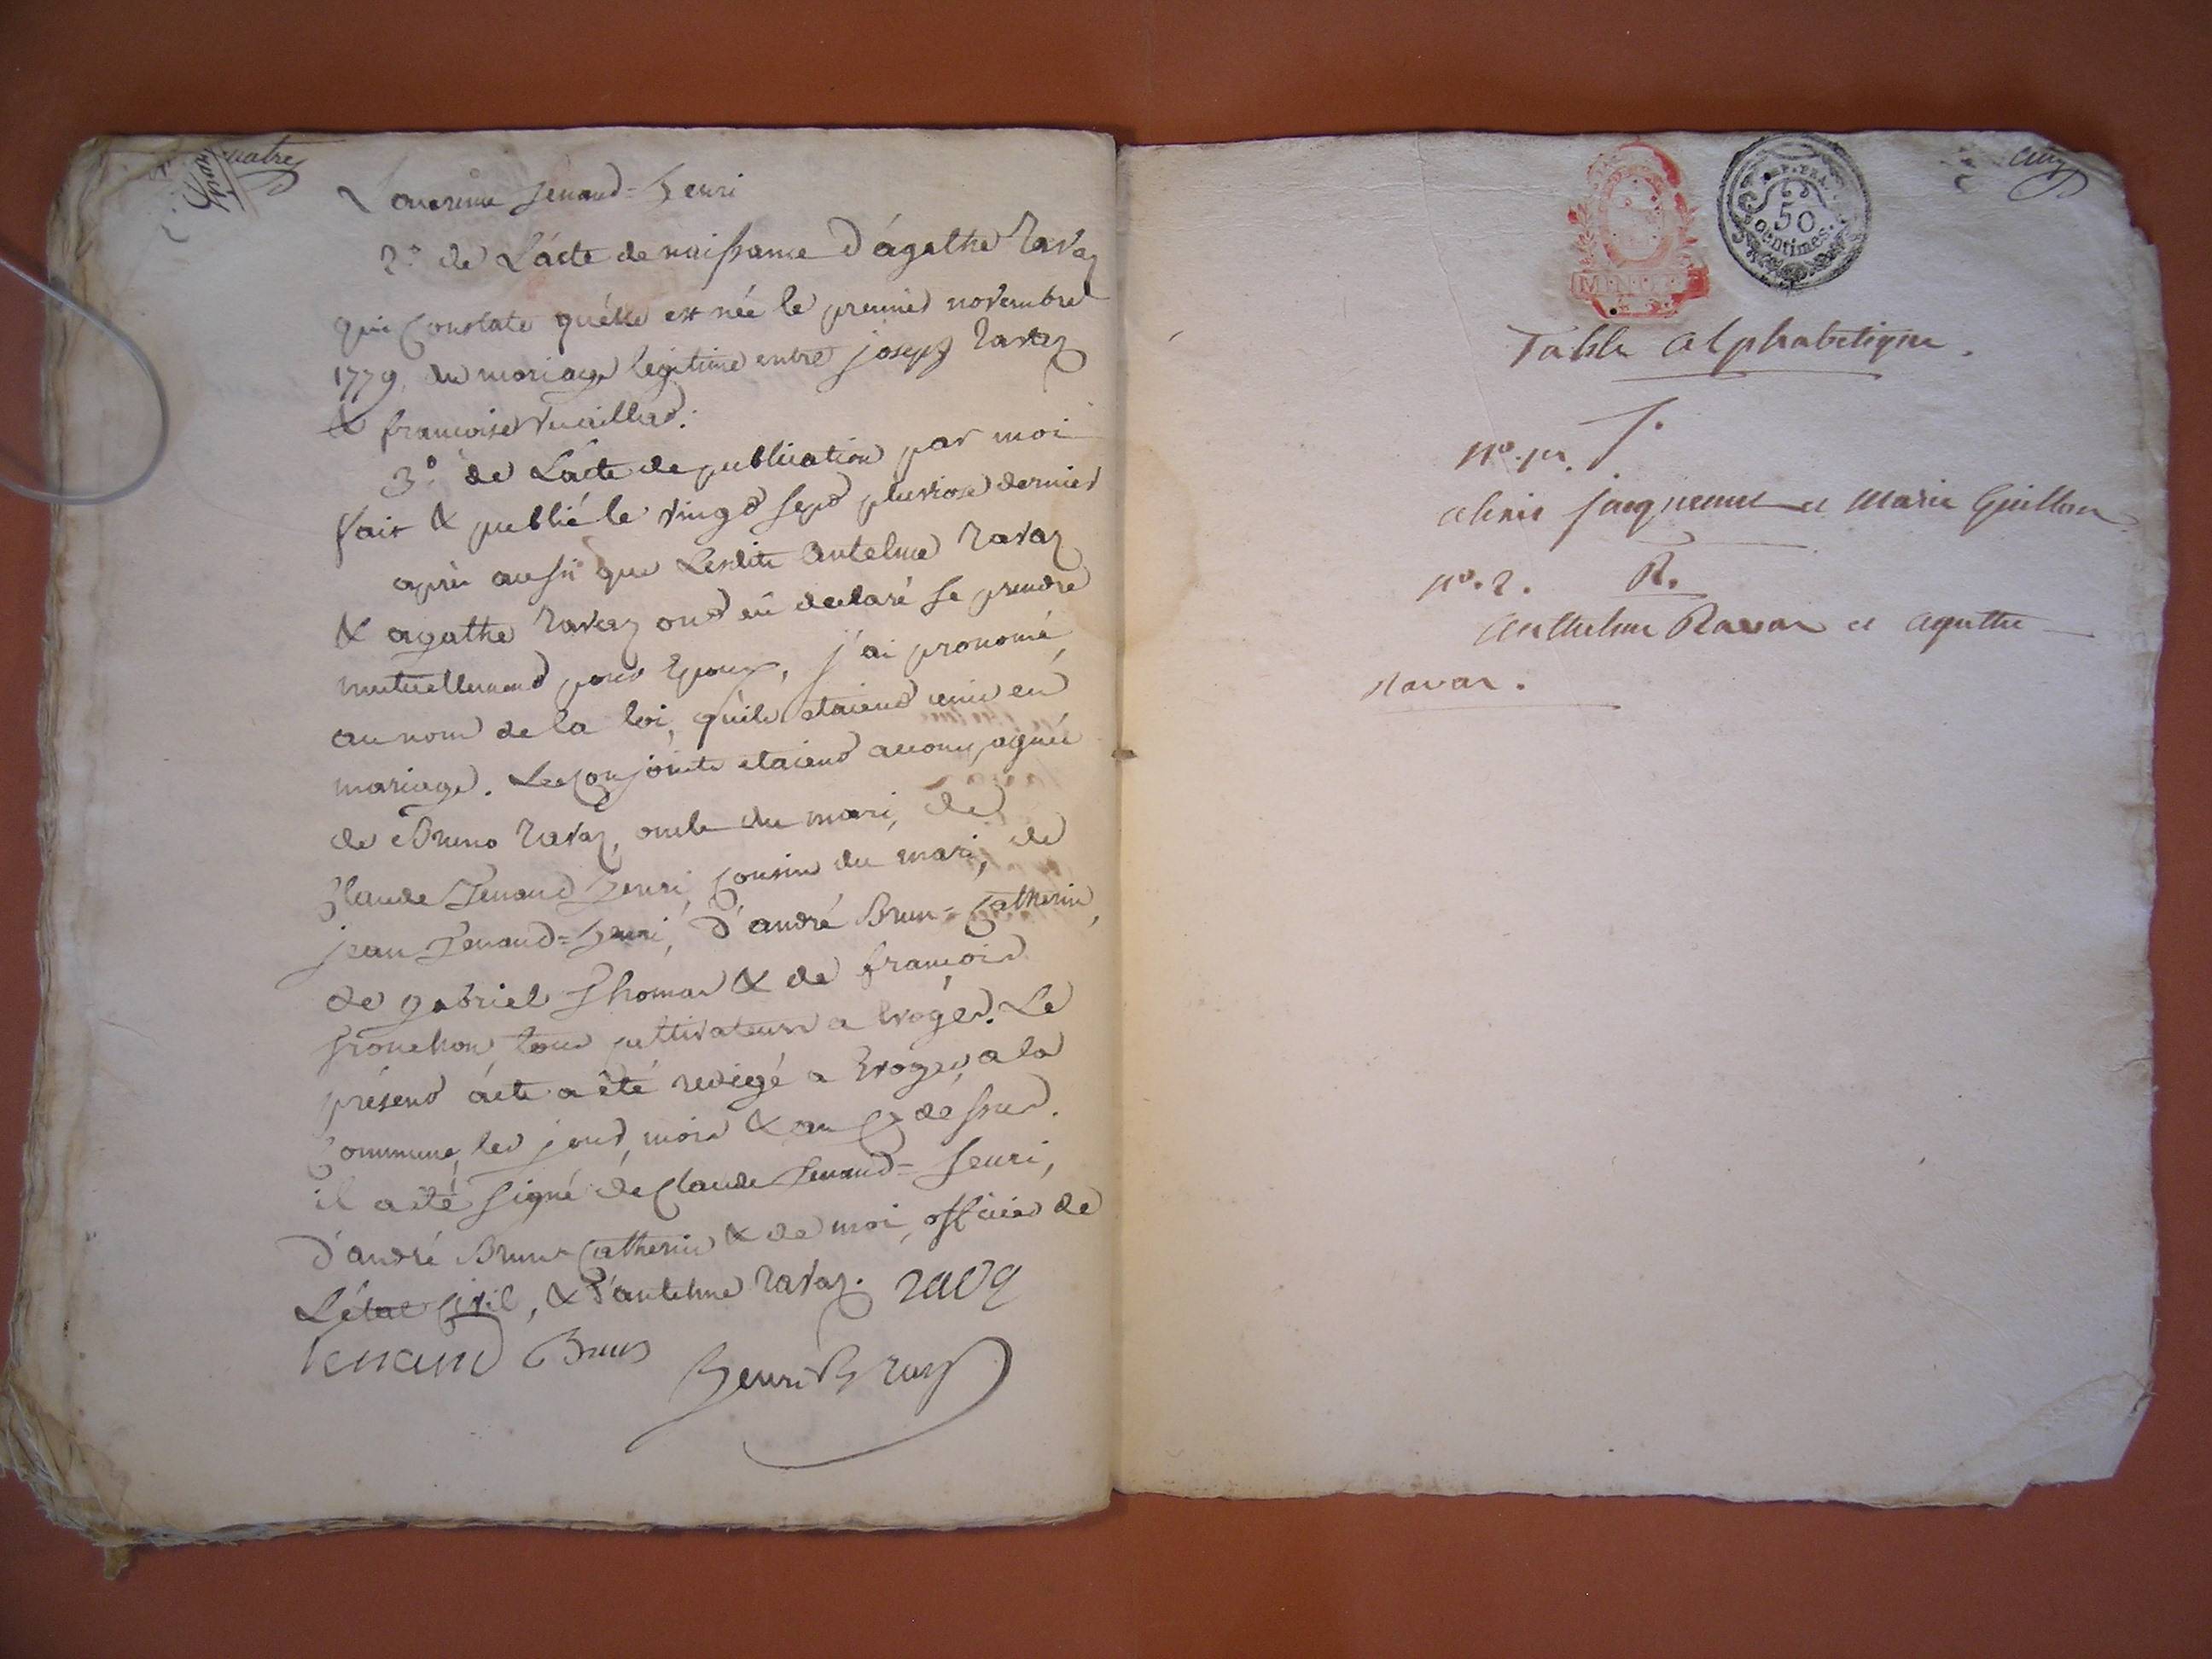 quatre
Laurence Jenand=henri
2.º de L'acte de naissance d'agathe Ravaz
qui Constate qu'elle est née le premier novembre
1779, du mariage legitime entre joseph Ravaz
& francoise Vuaillad.
3.º de L'acte de publication par moi
fait & publié le vingt sept pluviose dernier
après aussi que Lesdits Antelme Ravaz
& agathe Ravaz ont eu declaré se prendre
mutuellement pour Epoux, j'ai prononcé,
au nom de la loi, qu'ils etaient unis en
mariage. Les conjoints etaient accompagnés
de Bruno Ravaz, oncle du mari, de
Claude Jenand henri, cousin du mari, de
jean Jenand=henri, d'andré Brun=Catherin,
de gabriel Thomas & de françois
tous cultivateurs a Evoges. Le
présent acte a été redigé a Evoges, a la
Commune, les jour, mois & an Cy dessus.
il a été signé de Claude Jenand=henri,
d'andré Brun=Catherin & de moi, officier de
L'état Civil, & d'antelme Ravaz. Ravaz
Jenand Brun
henri
cinq
REP. FRA.
50
centimes.
MINUTE
Table alphabetique.
J.
nº. 1er.
alexis jacquemet et Marie Guillon
nº. 2. R.
Anthelme Ravaz et agathe
Ravaz.